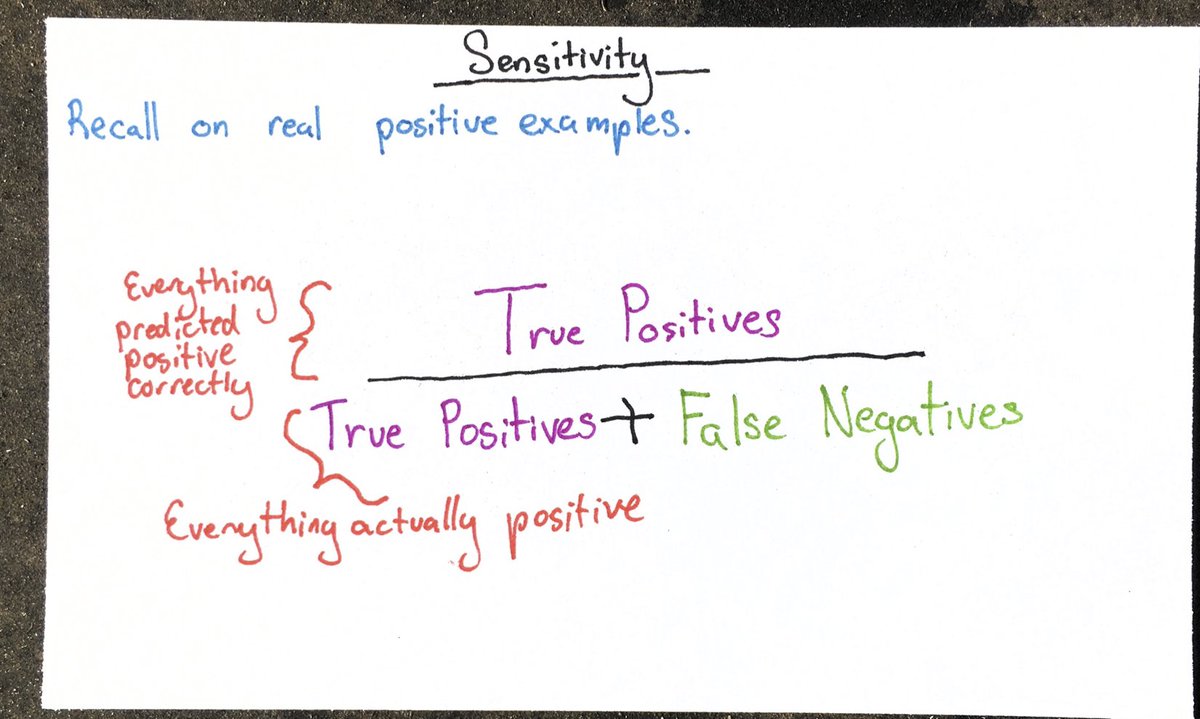 Sensitivity
Recall on real positive examples.
Everything
predicted
positive
correctly
True Positives
True Positives + False Negatives
Everything actually positive